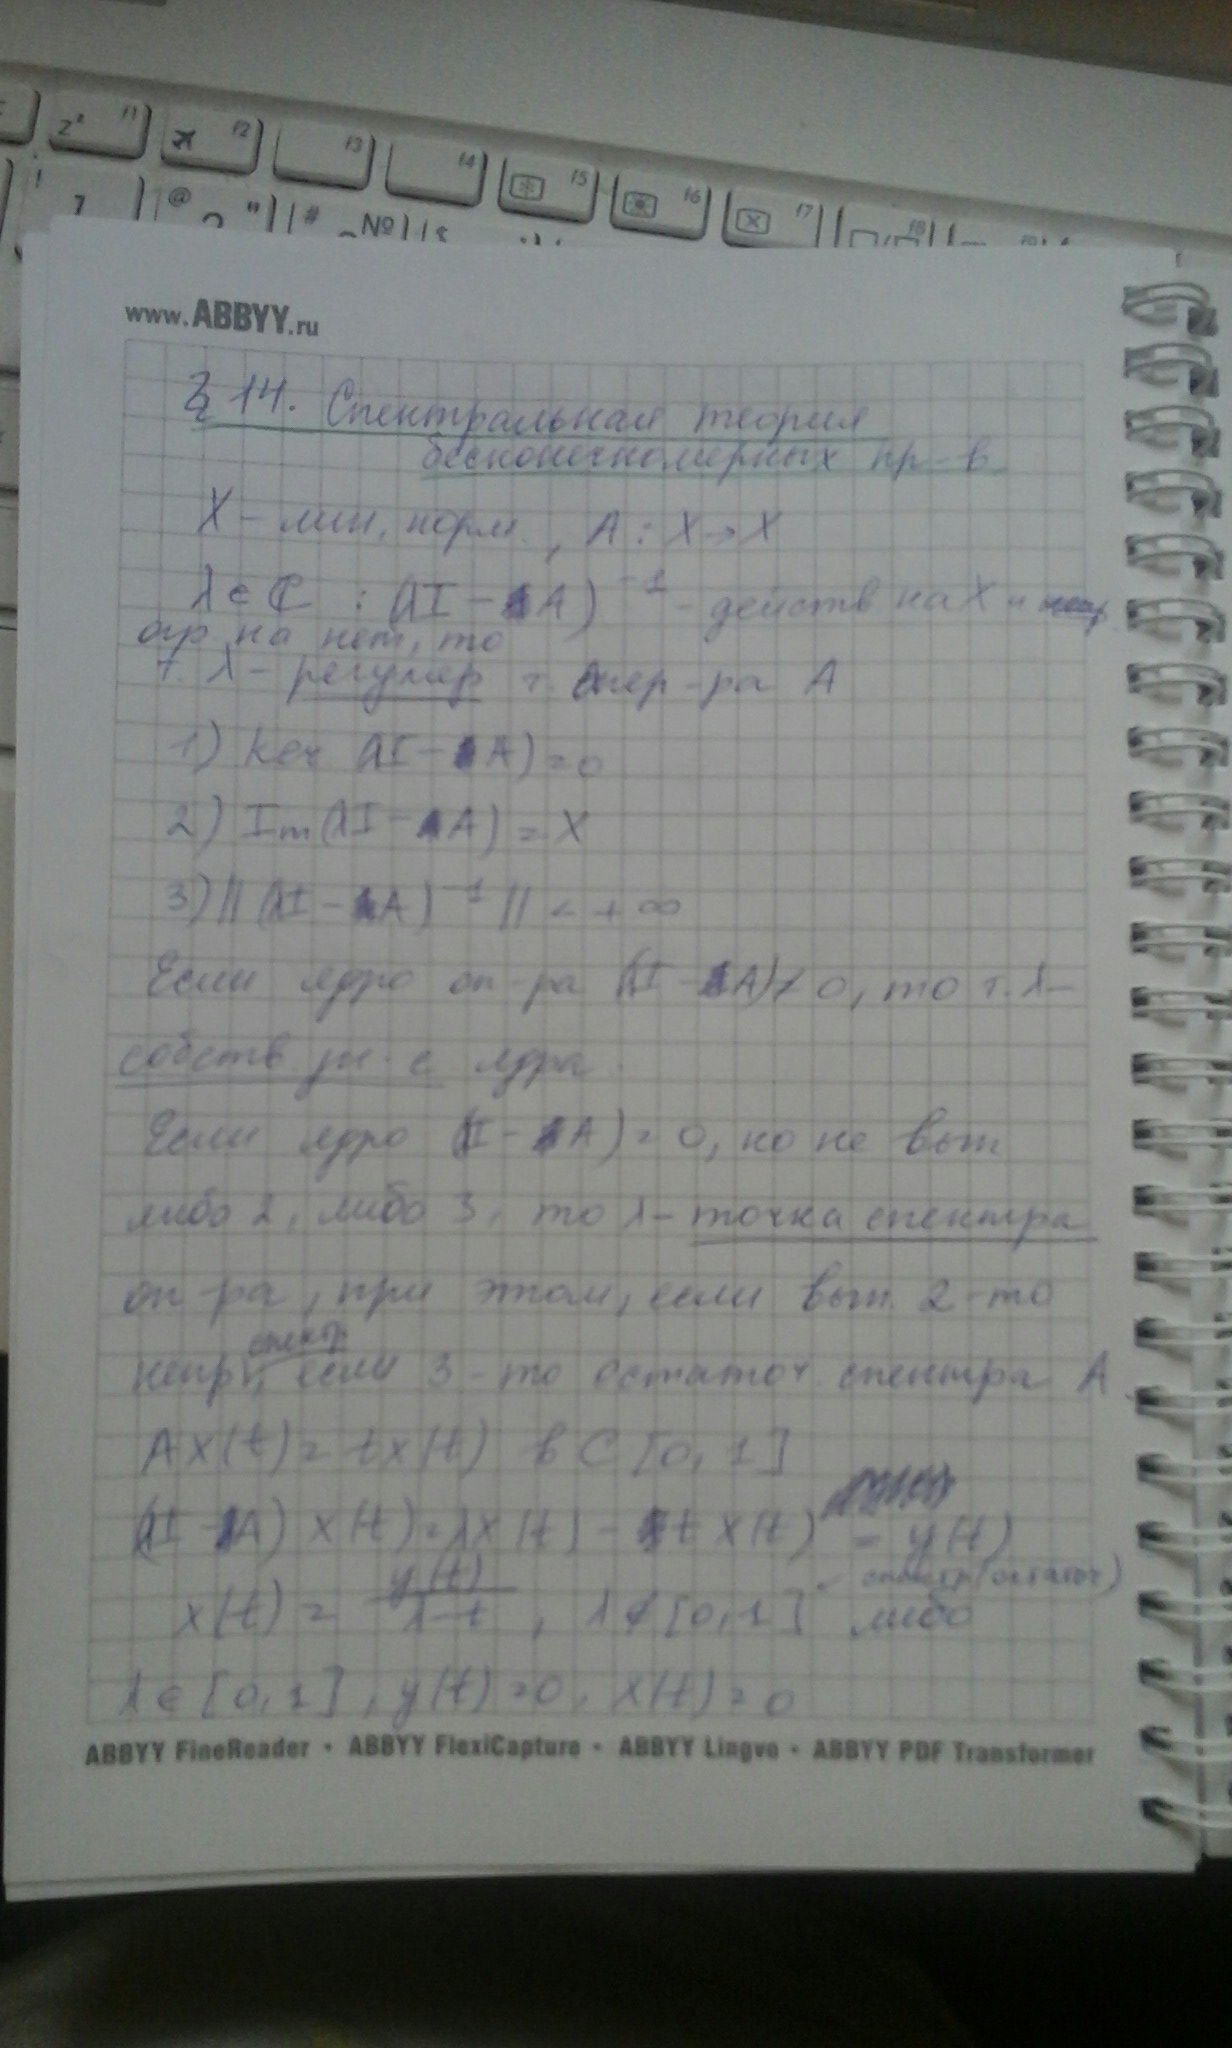 z² 11
12
13
14
15
16
17
18
! 1
@ "
# №
www.ABBYY.ru
§ 14. Спектральная теория
бесконечномерных пр-в
X – лин. норм., A : X → X
λ ∈ ℂ : (λI – A)⁻¹ – действ на X и
огр на нем, то
т. λ – регуляр т. опер-ра A
1) Ker (λI – A) = 0
2) Im (λI – A) = X
3) || (λI – A)⁻¹ || < + ∞
Если ядро оп-ра (λI – A) ≠ 0, то т. λ –
собств зн. с ядра.
Если ядро (λI – A) = 0, но не вып
либо 2, либо 3, то λ – точка спектра
оп-ра, при этом, если вып. 2 – то
непр. спектр, если 3 – то остаточ. спектра A.
Ax(t) = tx(t) в C [0, 1]
(λI – A) x(t) = λx(t) – t x(t) = y(t)
x(t) = y(t) / λ – t , λ ∉ [0, 1] спектр (остаточ) либо
λ ∈ [0, 1], y(t) = 0, x(t) = 0
ABBYY FineReader • ABBYY FlexiCapture • ABBYY Lingvo • ABBYY PDF Transformer